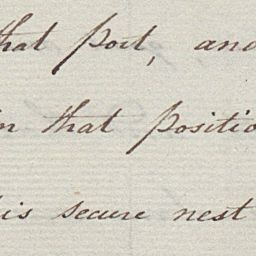 that port, and
in that positio
his secure nest